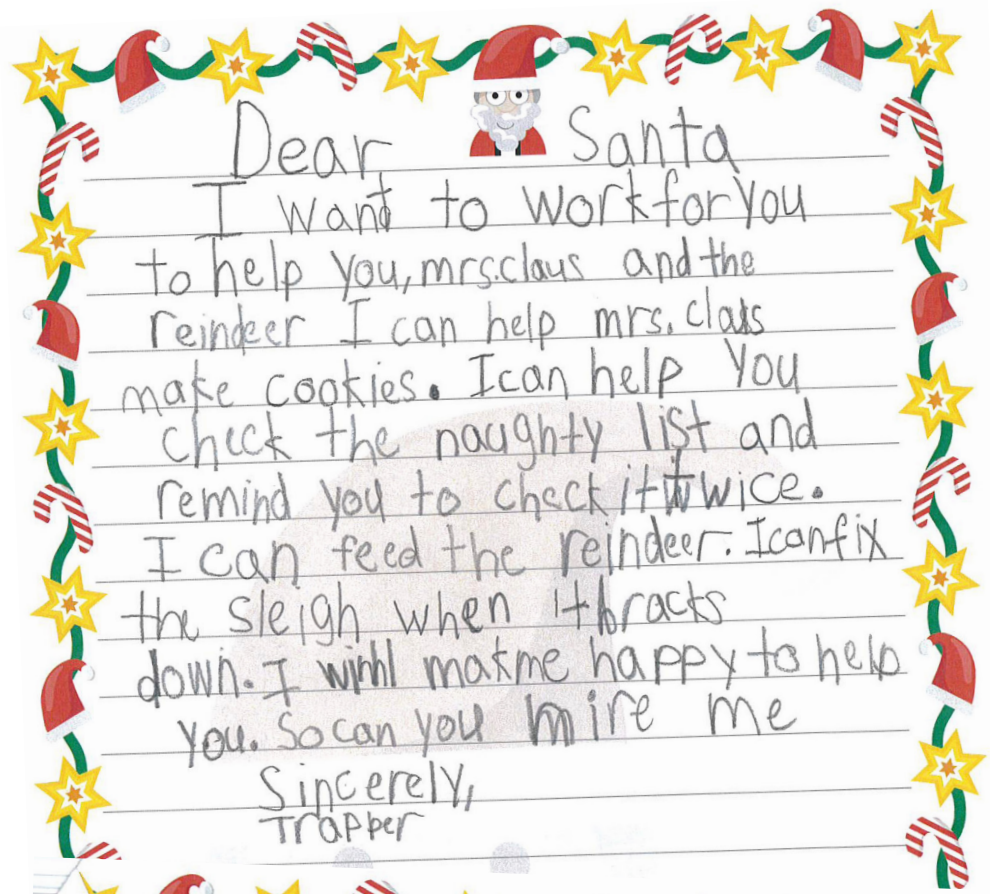 Dear Santa
I want to work for You
to help you, mrs.claus and the
reindeer I can help mrs. claus
make cookies. I can help You
check the naughty list and
remind you to check it twice.
I can feed the reindeer. I can fix
the sleigh when it bracks
down. I makme happy to help
you. So can you mire me
Sincerely,
Trapper